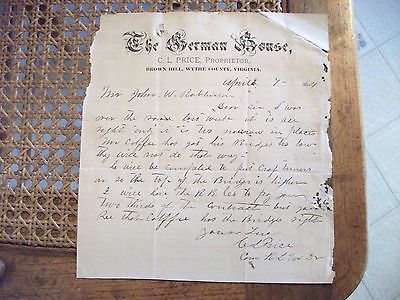 The German House,
C. L. PRICE, PROPRIETOR,
BROWN HILL, WYTHE COUNTY, VIRGINIA.
April 7
Mr John W. Robinson
Dear sir I was
over the road last week it is all
right only it is too narrow in places
Mr Colffee has got his Bridges to low
they will not do that way
he will be compeled to put
on so the top of the Bridge is higher
I will have the R.R. Co to pay you
two thirds of the contract but you
See that Colffee has the Bridges right
Yours Truly
C L Price